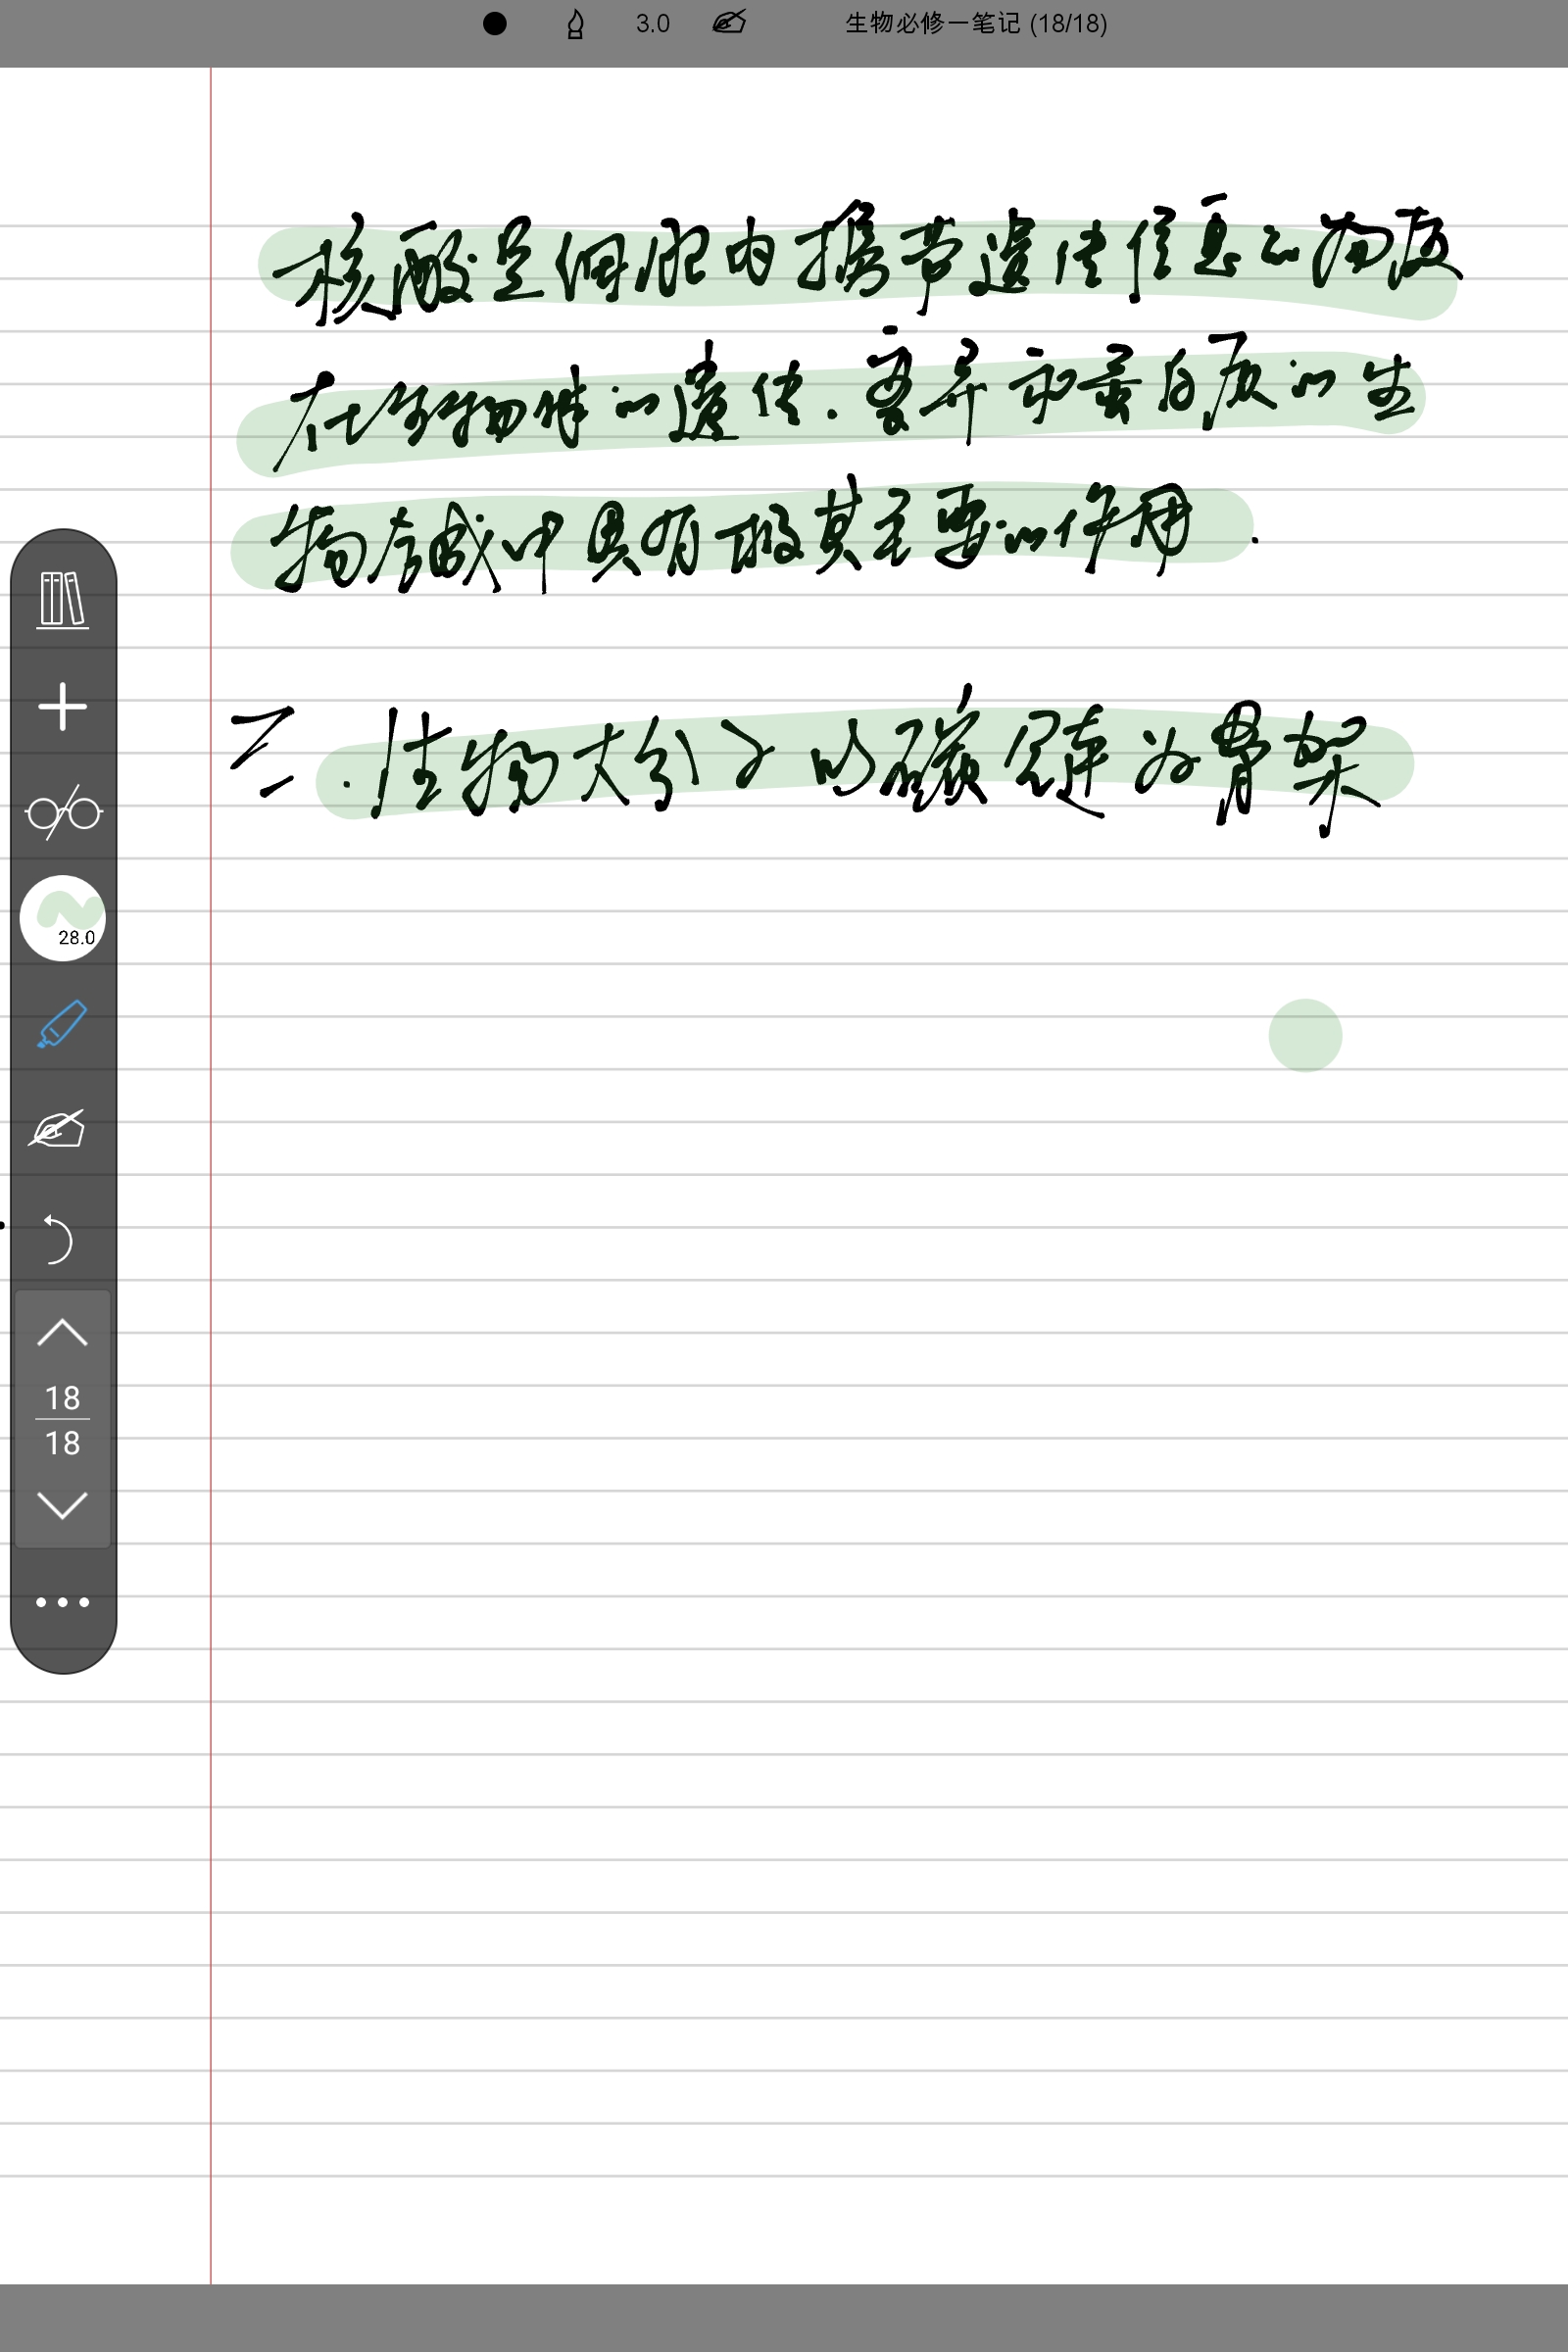 3.0 生物必修一笔记 (18/18)
核酸是细胞内携带遗传信息的物质
在生物体的遗传.变异和蛋白质的生
物合成中具有极其重要的作用.
三.生物大分子以碳链为骨架
28.0
18
18